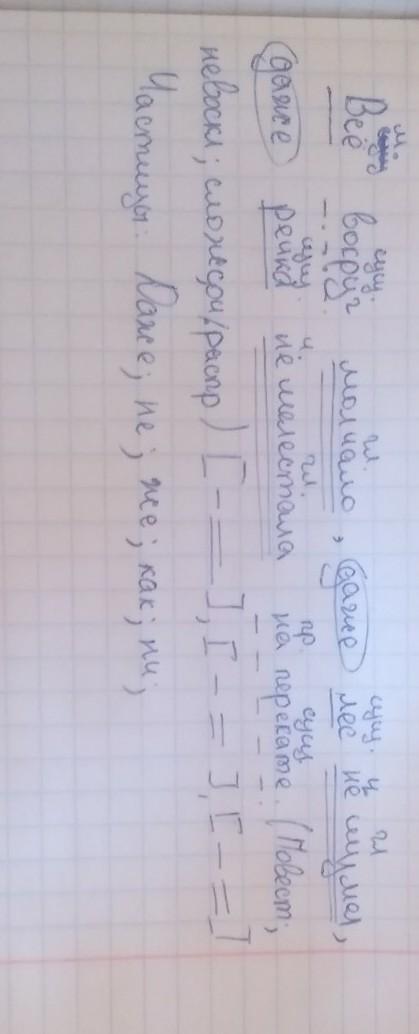 м. сущ. гл. сущ. ч гл
Всё вокруг молчало, даже лес не шумел,
сущ. ч. гл. пр. сущ
даже речка не шелестала на перекате. (Повест;
невоскл; сложсоч/распр) [- =], [- =], [- =]
Частицы: Даже; не; же; как; ни;